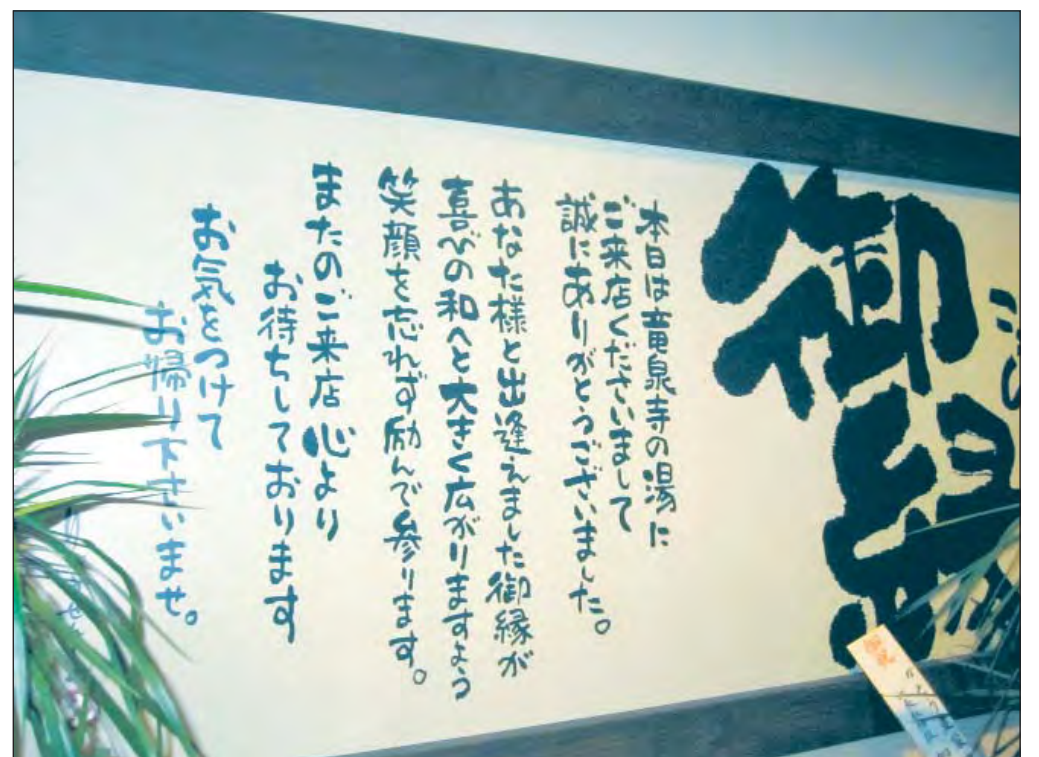 御
本日は竜泉寺の湯に
ご来店くださいまして
誠にありがとうございました。
あなた様と出逢えました御縁が
喜びの和へと大きく広がりますよう
笑顔を忘れず励んで参ります。
またのご来店 心より
お待ちしております
お気をつけて
お帰り下さいませ。